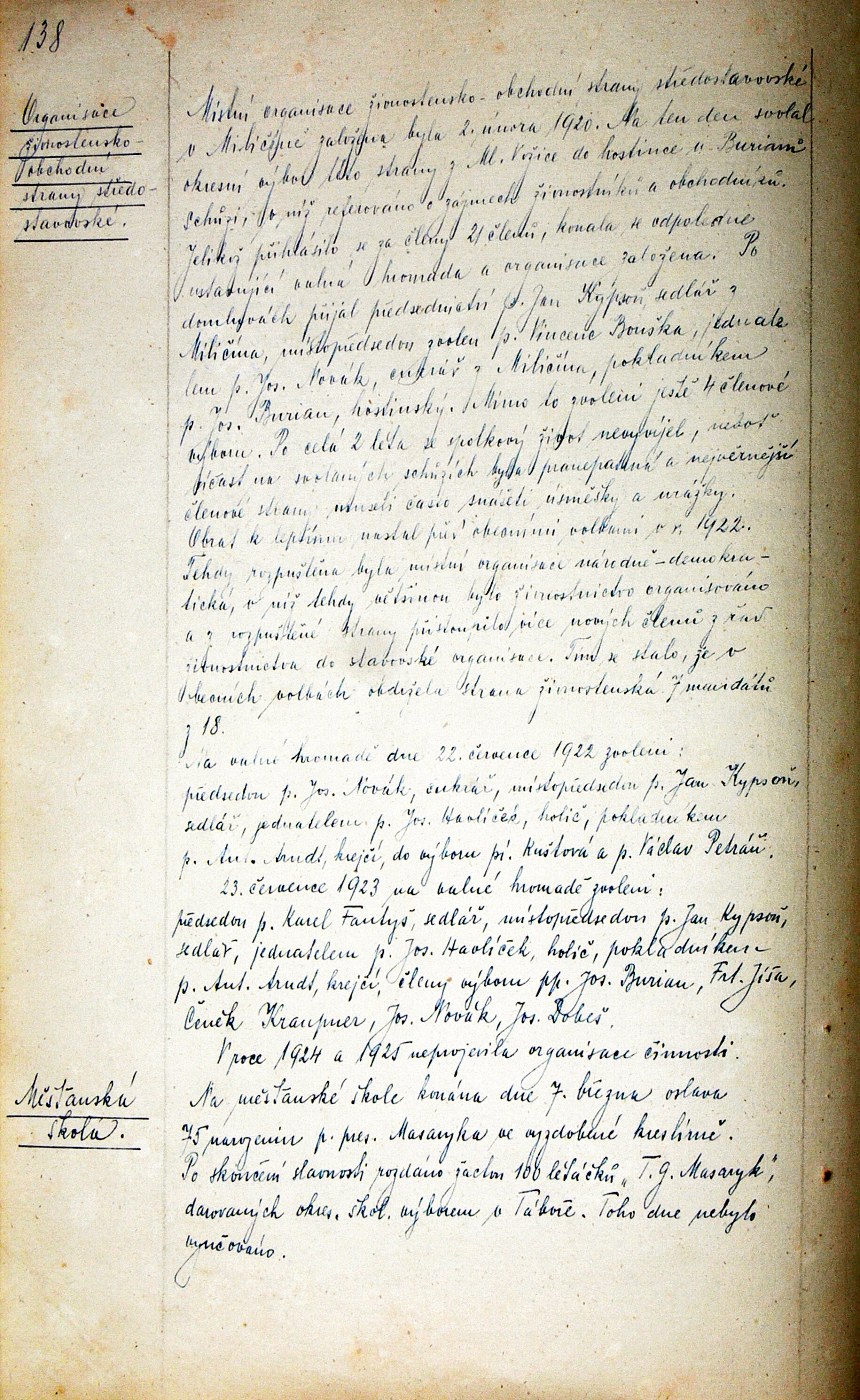 138
Organisace
živnostensko-
obchodní
strany středo-
stavovské.
Místní organisace živnostensko-obchodní strany středostavovské
v Miličíně založena byla 2. února 1920. Na ten den svolal
okresní výbor této strany z Ml. Vožice do hostince u Burianů
schůzi, v níž referováno o zájmech živnostníků a obchodníků.
Jelikož přihlásilo se za členy 21 členů, konala se odpoledne
ustavující valná hromada a organisace založena. Po
domluvách přijal předsednictví p. Jan Kypsoň, sedlář z
Miličína, místopředsedou zvolen p. Vincenc Bouška, jednate
lem p. Jos. Novák, cukrář z Miličína, pokladníkem
p. Jos. Burian, hostinský. Mimo to zvoleni ještě 4 členové
výboru. Po celá 2 léta se spolkový život nevyvíjel, neboť
účast na svolaných schůzích byla pranepatrná a nejvěrnější
členové strany museli často snášeti úsměšky a urážky.
Obrat k lepšímu nastal před obecními volbami v r. 1922.
Tehdy rozpuštěna byla místní organisace národně-demokra-
tická, v níž tehdy většinou bylo živnostnictvo organisováno
a z rozpuštěné strany přistoupilo více nových členů z řad
živnostnictva do stavovské organisace. Tím se stalo, že v
obecních volbách obdržela strana živnostenská 7 mandátů
z 18.
Na valné hromadě dne 22. července 1922 zvoleni:
předsedou p. Jos. Novák, cukrář, místopředsedou p. Jan Kypsoň,
sedlář, jednatelem p. Jos. Havlíček, holič, pokladníkem
p. Ant. Arndt, krejčí, do výboru pí. Kuštová a p. Václav Petráň.
23. července 1923 na valné hromadě zvoleni:
předsedou p. Karel Fantyš, sedlář, místopředsedou p. Jan Kypsoň,
sedlář, jednatelem p. Jos. Havlíček, holič, pokladníkem
p. Ant. Arndt, krejčí, členy výboru pp. Jos. Burian, Frt. Jíša,
Čeněk Kraupner, Jos. Novák, Jos. Dobeš.
V roce 1924 a 1925 neprojevila organisace činnosti.
Měšťanská
škola.
Na měšťanské škole konána dne 7. března oslava
75 narozenin p. pres. Masaryka ve vyzdobené kreslírně.
Po skončení slavnosti rozdáno žactvu 100 letáčků „T. G. Masaryk",
darovaných okres. škol. výborem v Táboře. Toho dne nebylo
vyučováno.